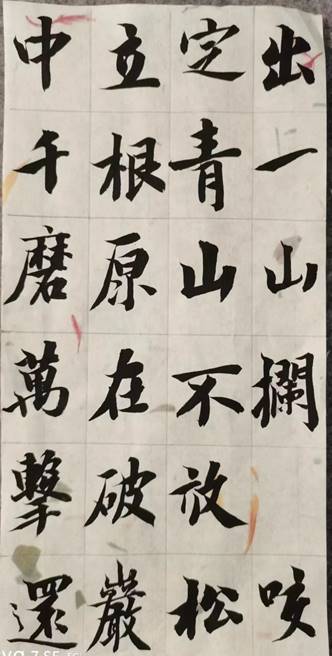 出一山攔 咬
定青山不放松
立根原在破巖
中千磨萬擊還